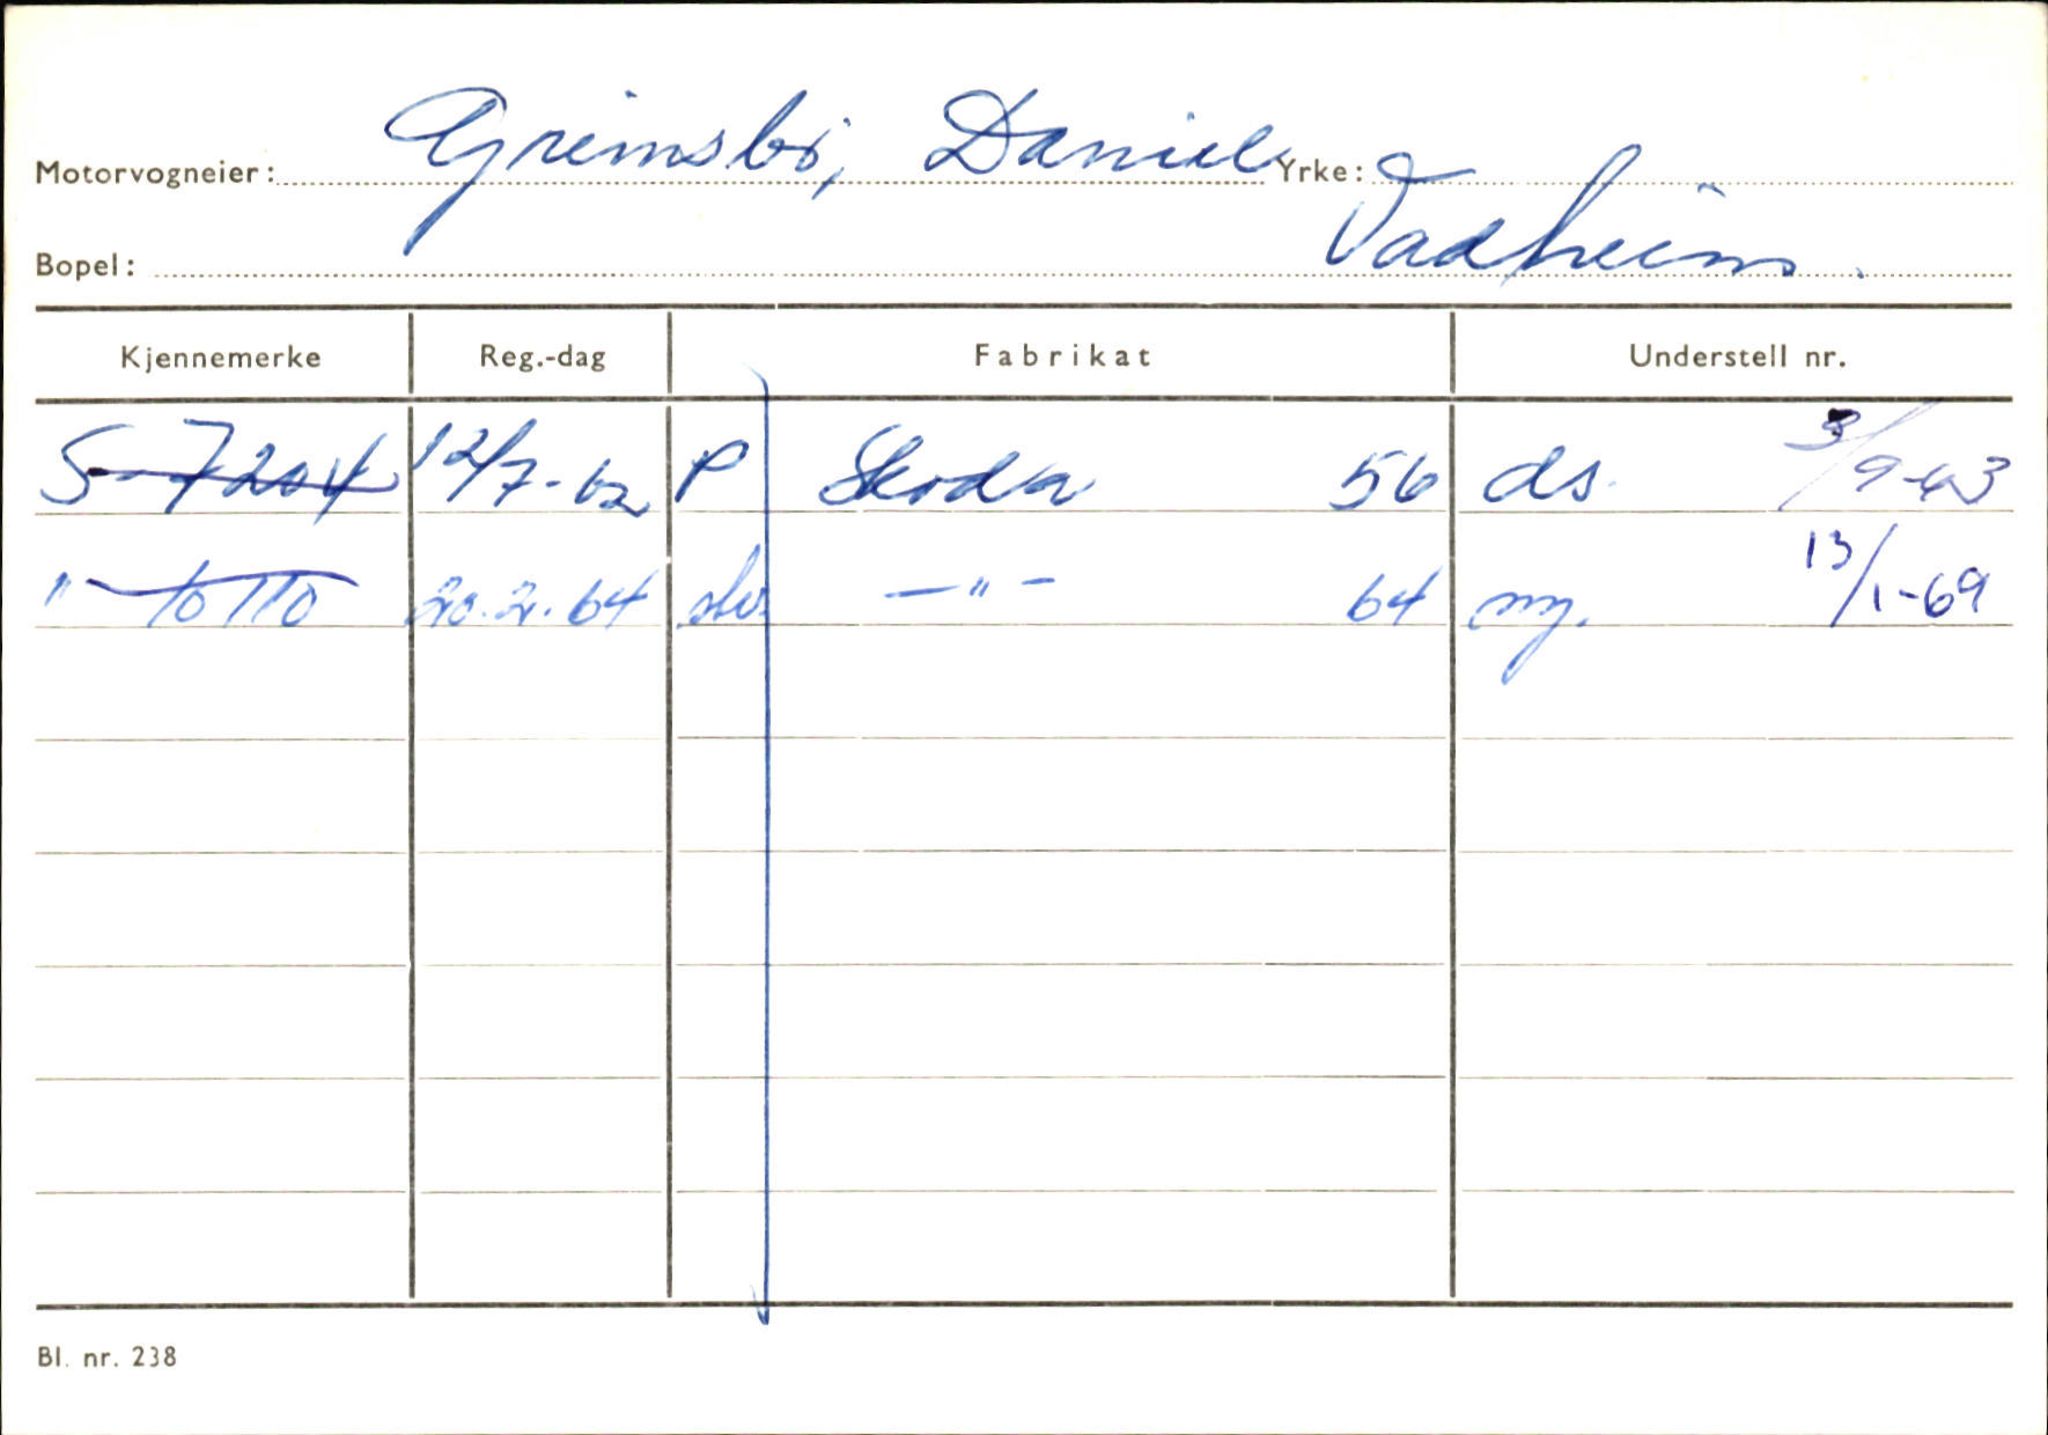 Motorvogneier: Grimsbø, Daniel Yrke:
Bopel: Vadheim.
Kjennemerke Reg.-dag Fabrikat Understell nr.
S-7204 12/7-62 P Skoda 56 ds. 3/9-63
" 10110 20.2.64 —"— 64 ny. 13/1-69
Bl. nr. 238